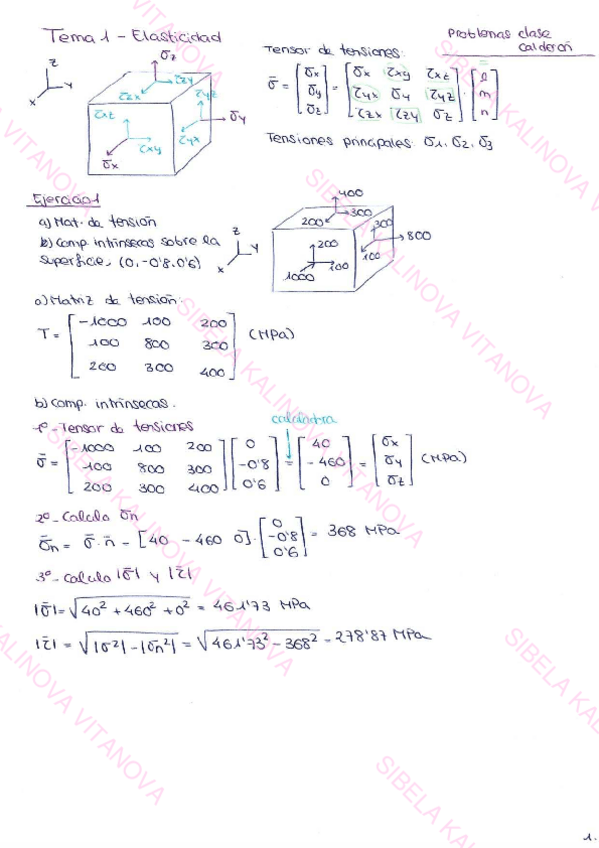 Problemas clase
Calderón
Tema 1 - Elasticidad
Tensor de tensiones:
σ̄ = [σx σy σz] = [σx τxy τxz; τyx σy τyz; τzx τzy σz] · [l m n]
Tensiones principales: σ1, σ2, σ3
z
y
x
σz
τzx
τzy
τxz
τyz
σy
τxy
τyx
σx
Ejercicio 1
a) Mat. de tensión
b) Comp. intrínsecas sobre la
superficie, (0, -0'8, 0'6)
z
y
x
400
200
300
300
800
200
100
1000
100
a) Matriz de tensión:
T = [-1000 100 200; 100 800 300; 200 300 400] (MPa)
b) Comp. intrínsecas.
1º - Tensor de tensiones
calculadora
σ̄ = [-1000 100 200; 100 800 300; 200 300 400] [0 -0'8 0'6] = [40 -460 0] = [σx σy σz] (MPa)
2º - Calculo σ̄n
σ̄n = σ̄ · n̄ = [40 -460 0] · [0 -0'8 0'6] = 368 MPa
3º - Calculo |σ̄| y |τ̄|
|σ̄| = √(40² + 460² + 0²) = 461'73 MPa
|τ̄| = √(|σ²| - |σ̄n²|) = √(461'73² - 368²) = 278'87 MPa
1.
SIBELA KALINOVA VITANOVA